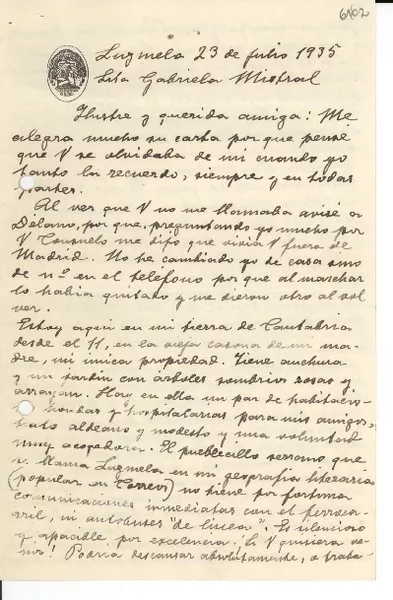 6502
Luzmela 23 de julio 1935
Srta Gabriela Mistral
Ilustre y querida amiga: Me
alegra mucho su carta por que pensé
que V se olvidaba de mi cuando yo
tanto la recuerdo, siempre y en todas
partes.
Al ver que V no me llamaba avisé a
Délano, por que, preguntando yo mucho por
V Consuelo me dijo que vivia V fuera de
Madrid. No he cambiado yo de casa sino
de nº en el teléfono por que al marchar
lo habia quitado y me dieron otro al vol
ver.
Estoy aqui en mi tierra de Cantabria
desde el 11, en la vieja casona de mi ma-
dre, mi unica propiedad. Tiene anchura
y un jardin con árboles sombrios rosas y
arrayan. Hay en ella un par de habitacio-
hondas y hospitalarias para mis amigos,
trato aldeano y modesto y una voluntad
muy acogedora. El pueblecillo serrano que
se llama Luzmela en mi geografia literaria
(popular en Correos) no tiene por fortuna
comunicaciones inmediatas con el ferroca-
rril, ni autobuses "de linea". Es silencioso
y apacible por excelencia. Si V quisiera ve-
nir! Podria descansar absolutamente, o traba-